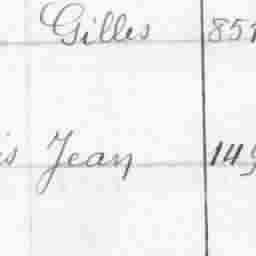 Gilles 851
is Jean 149